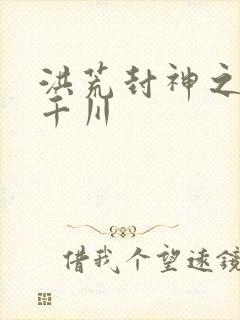 洪荒封神之
干川
借我个望远镜